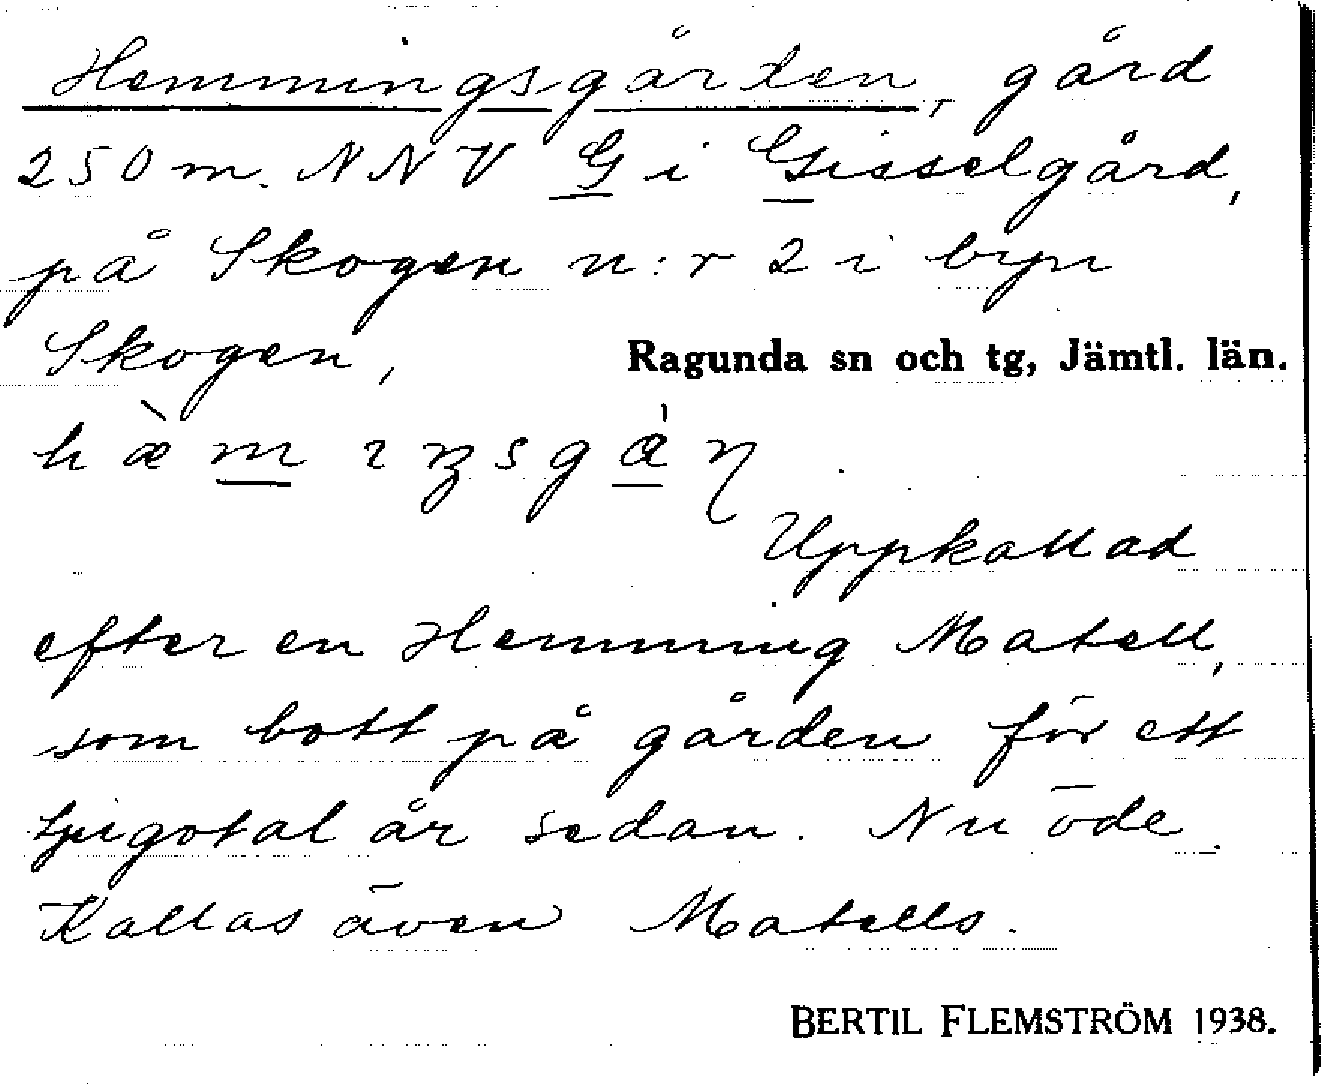 Hemmingsgården, gård
250 m. NNV G i Gisselgård,
på Skogen n:r 2 i byn
Skogen, Ragunda sn och tg, Jämtl. län.
Uppkallad
efter en Hemming Matell,
som bott på gården för ett
tjugotal år sedan. Nu öde.
Kallas även Matells.
BERTIL FLEMSTRÖM 1938.